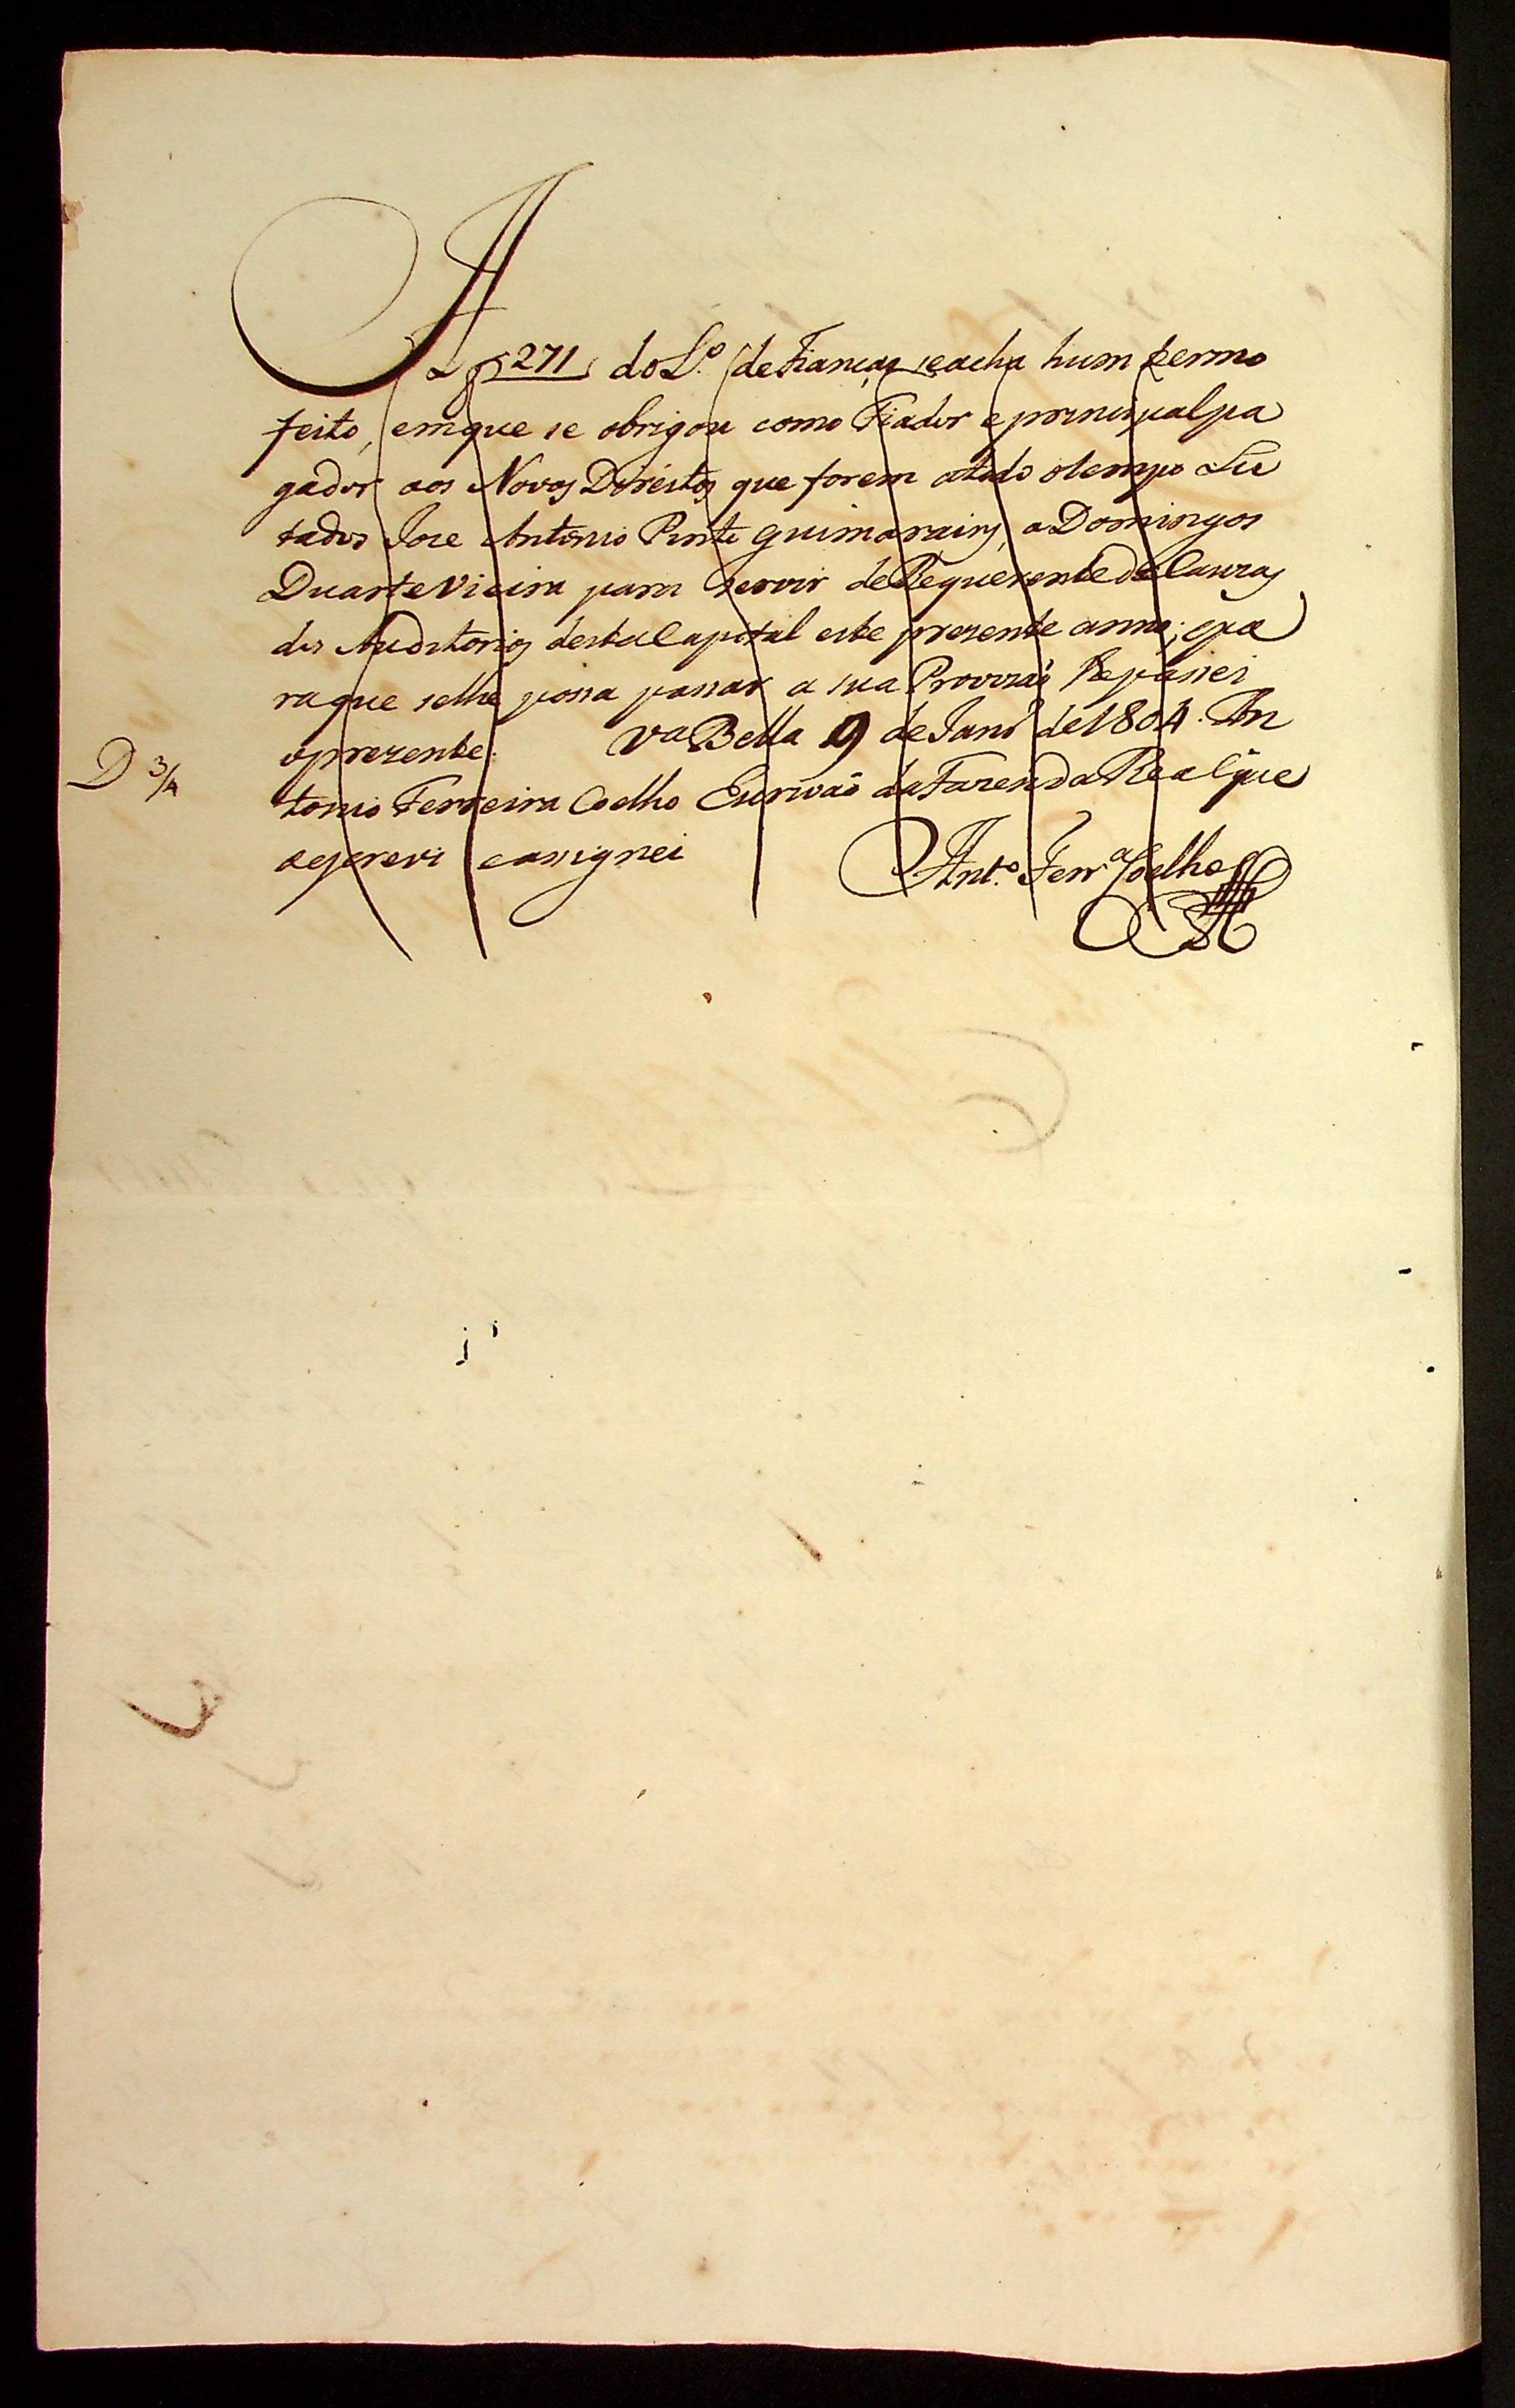 A f 271 do L.º de Fianças seacha hum termo
feito, emque se obrigou como Fiador e principal pa
gador aos Novos Direitos que forem atodo otempo Lu
tados Joze Antonio Pinto Guimarains, a Domingos
Duarte Vieira para servir de Requerente de Cauzas
dos Auditorios desta Capital este prezente anno; epa
raque selhe possa passar a sua Provizaõ lhe passei
oprezente. Va Bella 9 de Janrº de 1804. An
D 3/4
tonio Ferreira Coelho Escrivaõ da Fazenda Real que
aescrevi eassignei
Antº Ferrª Coelho